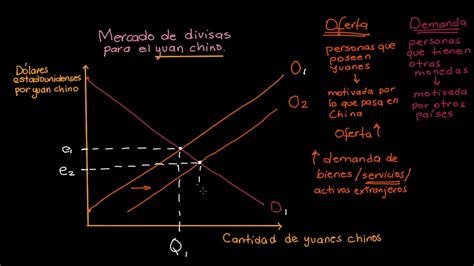 Mercado de divisas
para el yuan chino.
Dólares
estadounidenses
por yuan chino
O₁
O₂
e₁
e₂
D₁
Q₁
Cantidad de yuanes chinos
Oferta
personas que
poseen
yuanes
motivada por
lo que pasa en
China
Oferta ↑
↑ demanda de
bienes/servicios/
activos extranjeros
Demanda
personas
que tienen
otras
monedas
motivada
por otros
países